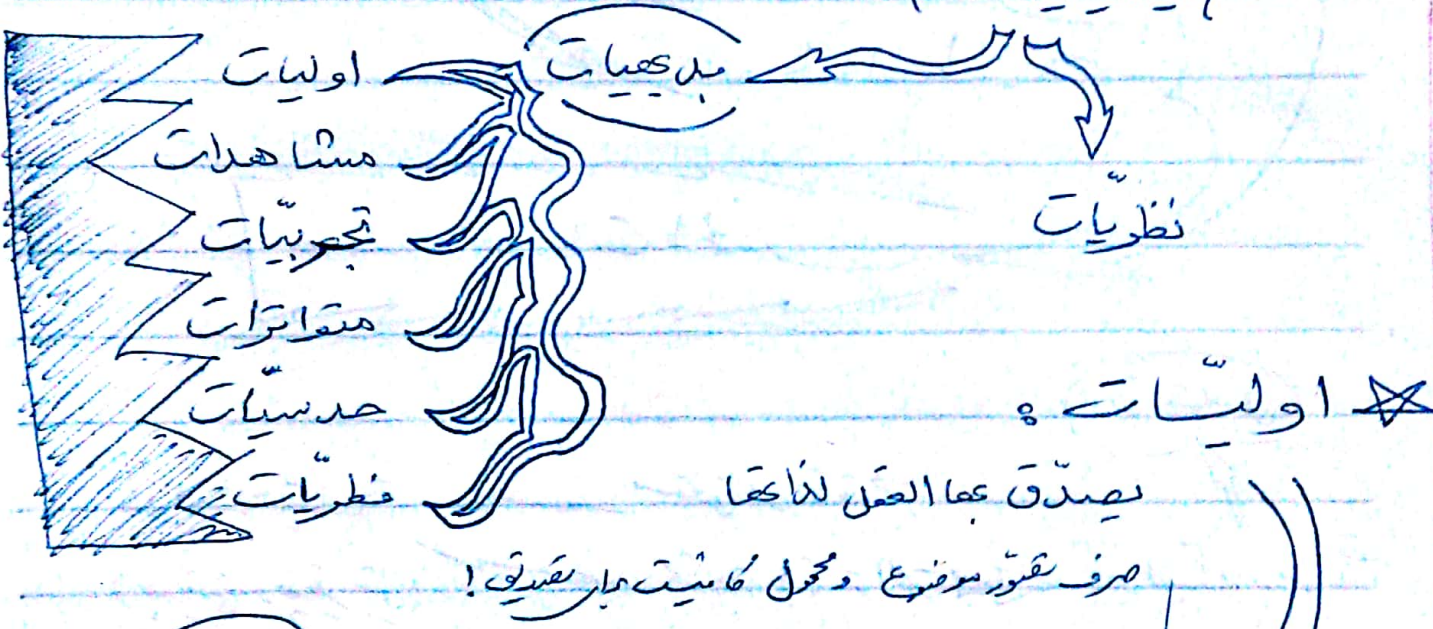 بدیهیات
اولیات
مشاهدات
نظریّات
تجربیّات
متواترات
حدسیّات
اولیّات :
فطریّات
یصدّق بها العقل لذاتها
صرف تصوّر موضوع و محمول کافیست برای تصدیق !